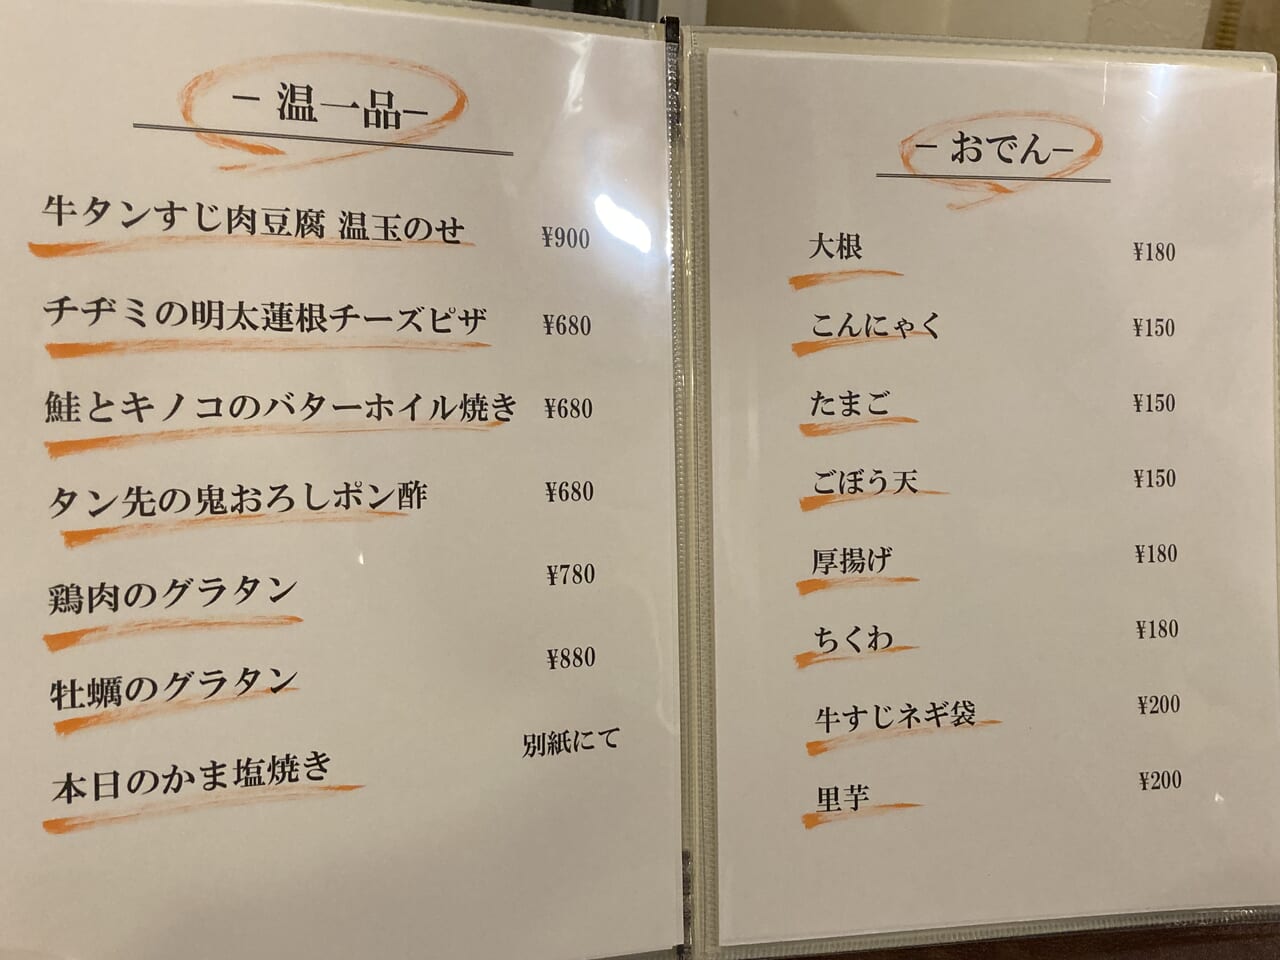 － 温一品－
牛タンすじ肉豆腐 温玉のせ ¥900
チヂミの明太蓮根チーズピザ ¥680
鮭とキノコのバターホイル焼き ¥680
タン先の鬼おろしポン酢 ¥680
鶏肉のグラタン ¥780
牡蠣のグラタン ¥880
本日のかま塩焼き 別紙にて
－ おでん－
大根 ¥180
こんにゃく ¥150
たまご ¥150
ごぼう天 ¥150
厚揚げ ¥180
ちくわ ¥180
牛すじネギ袋 ¥200
里芋 ¥200